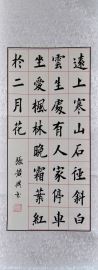 遠上寒山石徑斜白
雲生處有人家停車
坐愛楓林晚霜葉紅
於二月花
張